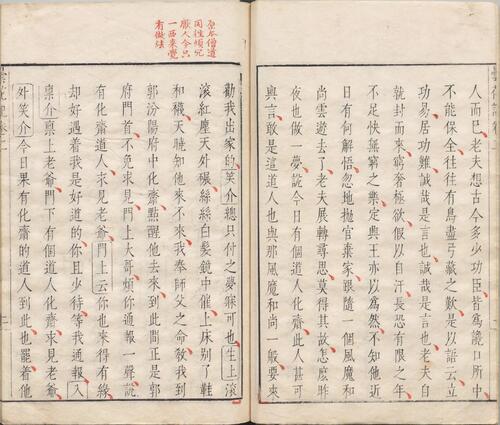 人而巳老夫想古今多少功臣皆爲讒口所中
不能保全往往有鳥盡弓藏之歎是以語云立
功易居功難誠哉是言也誠哉是言也老夫自
就封而來窮奢極欲假以自汗長恐有限之年
不足快無窮之樂定興王亦以爲然不知他近
日有何解悟忽地拋官棄家跟隨一個風魔和
尚雲遊去了老夫展轉尋思莫得其故怎麽昨
夜也做一夢說今日有個道人化齋此人甚可
與言敢是這道人也與那風魔和尚一般要來
僧道
厭人令只
一西來覺
有做法
勸我出家的笑介總只付之夢寐可也生上滾
滾紅塵天外碾絲絲白髮鏡中催上床别了鞋
和襪天曉知他來不來我奉師父之命敎我到
郭汾陽府中化齋點醒他去來到此間正是郭
府門首不免求見門上大哥煩你通報一聲說
有化齋道人求見老爺門上云你也來得有緣
却好遇着我是好道的你且少待等我通報入
稟介稟上老爺門下有個道人化齋求見老爺
外笑介今日果有化齋的道人到此也罷着他